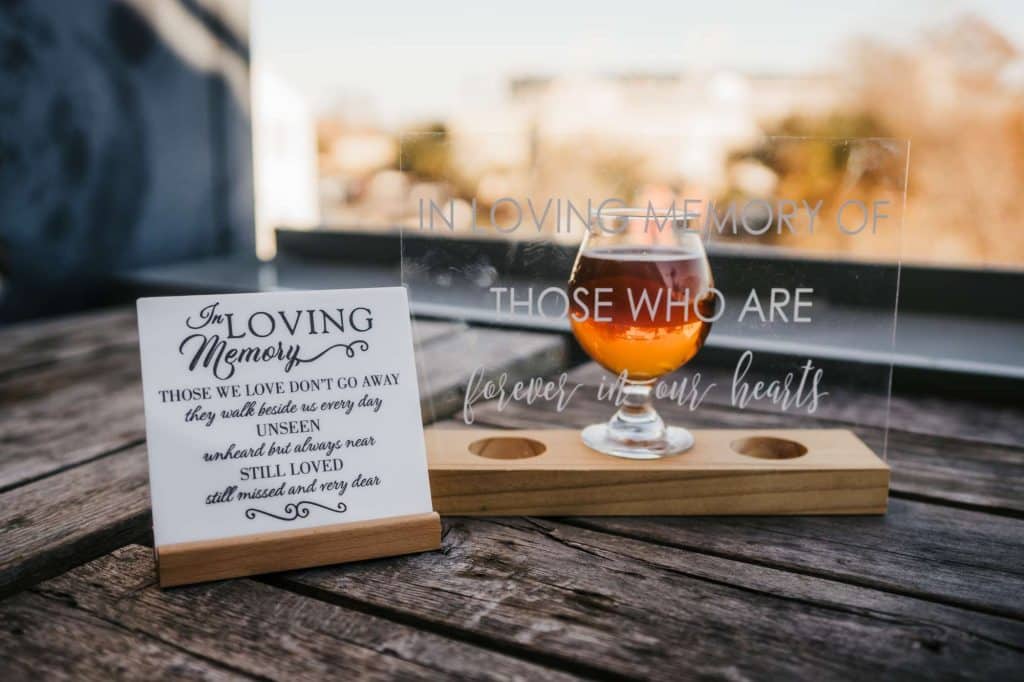 In LOVING
Memory
THOSE WE LOVE DON'T GO AWAY
they walk beside us every day
UNSEEN
unheard but always near
STILL LOVED
still missed and very dear
IN LOVING MEMORY OF
THOSE WHO ARE
forever in our hearts